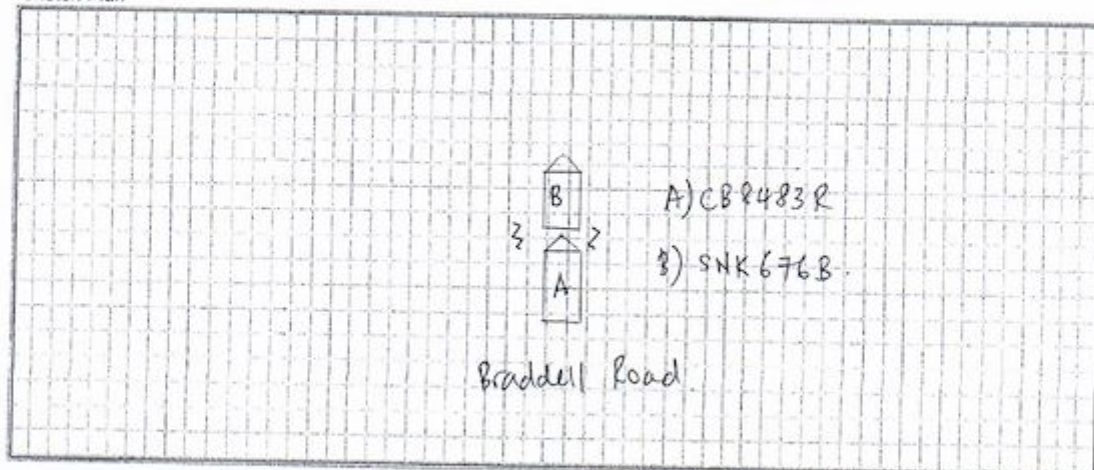 B
A) CB8483R
B) SNK676B.
A
Braddell Road